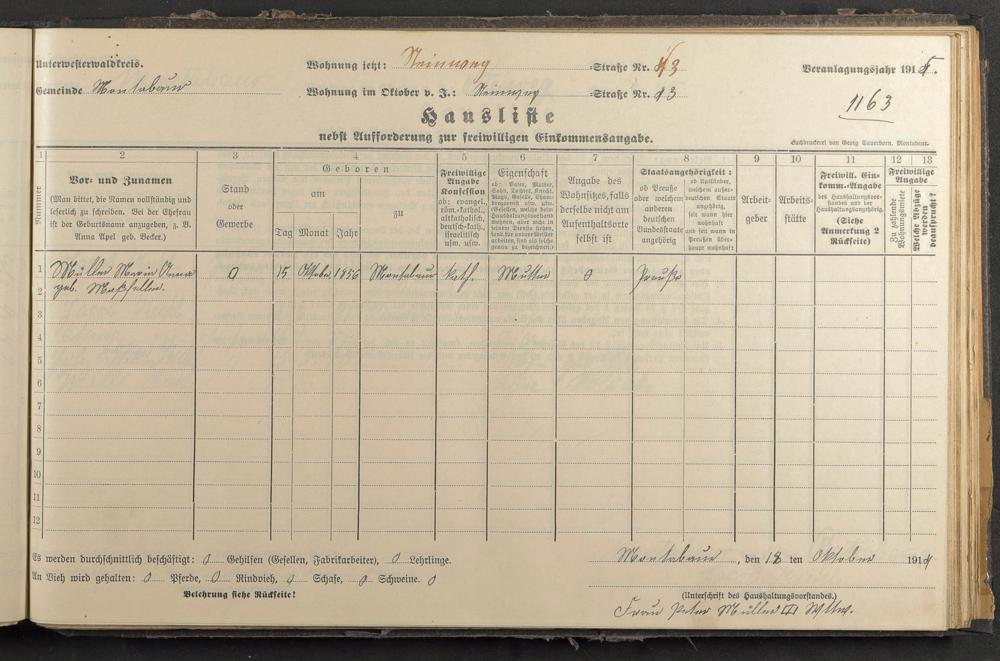 Unterwesterwaldkreis. Wohnung jetzt: Steinweg =Straße Nr. 13 Veranlagungsjahr 191
Gemeinde Montabaur Wohnung im Oktober v. J.: Steinweg =Straße Nr. 13
1163
Hausliste
nebst Aufforderung zur freiwilligen Einkommensangabe.
Buchdruckerei von Georg Sauerborn, Montabaur.
1 2 3 4 5 6 7 8 9 10 11 12 13
Nummer
Vor- und Zunamen
(Man bittet, die Namen vollständig und
leserlich zu schreiben. Bei der Ehefrau
ist der Geburtsname anzugeben, z. B.
Anna Apel geb. Becker.)
Stand
oder
Gewerbe
Geboren
am
Tag Monat Jahr
zu
Freiwillige
Angabe
Konfession
ob: evangel.,
röm.-kathol.,
altkatholisch,
deutsch-kath.,
israelitisch
usw. usw.
Eigenschaft
ob: Vater, Mutter,
Sohn, Tochter, Knecht,
Magd, Geselle,
usw. usw.
Angabe des
Wohnsitzes, falls
derselbe nicht am
Aufenthaltsorte
selbst ist
Staatsangehörigkeit:
ob Preuße
oder welchem
anderen
deutschen
Bundesstaate
angehörig
ob Ausländer,
welchem außer-
deutschen Staate
angehörig,
seit wann hier
wohnhaft
und seit wann in
Preußen über-
haupt wohnhaft
Arbeit-
geber
Arbeits-
stätte
Freiwill. Ein-
komm.-Angabe
des Haushaltungsvor-
standes und der
Haushaltungsangehörig.
(Siehe
Anmerkung 2
Rückseite)
Freiwillige
Angabe
Zu zahlende
Wohnungsmiete
Welche Abzüge
werden
beansprucht?
1 Müller Maria Anna 0 15 Oktober 1856 Montabaur kath. Mutter 0 Preuße
2 geb.
3
4
5
6
7
8
9
10
11
12
Es werden durchschnittlich beschäftigt: 0 Gehilfen (Gesellen, Fabrikarbeiter), 0 Lehrlinge.
An Vieh wird gehalten: 0 Pferde, 0 Rindvieh, 0 Schafe, 0 Schweine. 0
Belehrung siehe Rückseite!
Montabaur, den 18 ten Oktober 1914
(Unterschrift des Haushaltungsvorstandes.)
Frau Peter Müller Wttw.